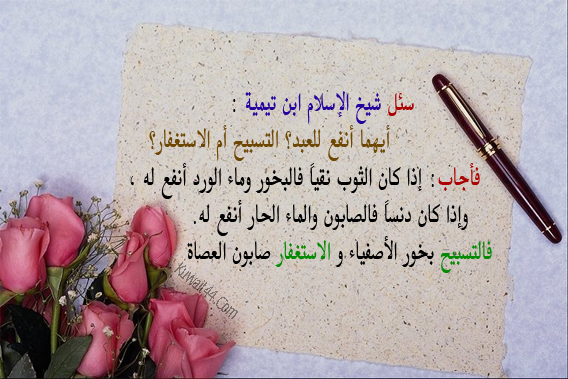 سئل شيخ الإسلام ابن تيمية :
أيهما أنفع للعبد؟ التسبيح أم الاستغفار؟
فأجاب : إذا كان الثوب نقياً فالبخور وماء الورد أنفع له ،
وإذا كان دنساً فالصابون والماء الحار أنفع له .
فالتسبيح بخور الأصفياء و الاستغفار صابون العصاة
Kuwait44.Com